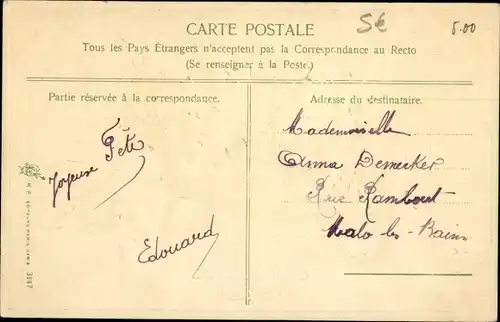 CARTE POSTALE
5€
5.00
Tous les Pays Étrangers n'acceptent pas la Correspondance au Recto
(Se renseigner à la Poste.)
Partie réservée à la correspondance.
Joyeuse Fête
Edouard
Adresse du destinataire.
Mademoiselle
Anna Demecker
Rue Rambout
Malo les-Bains
3147